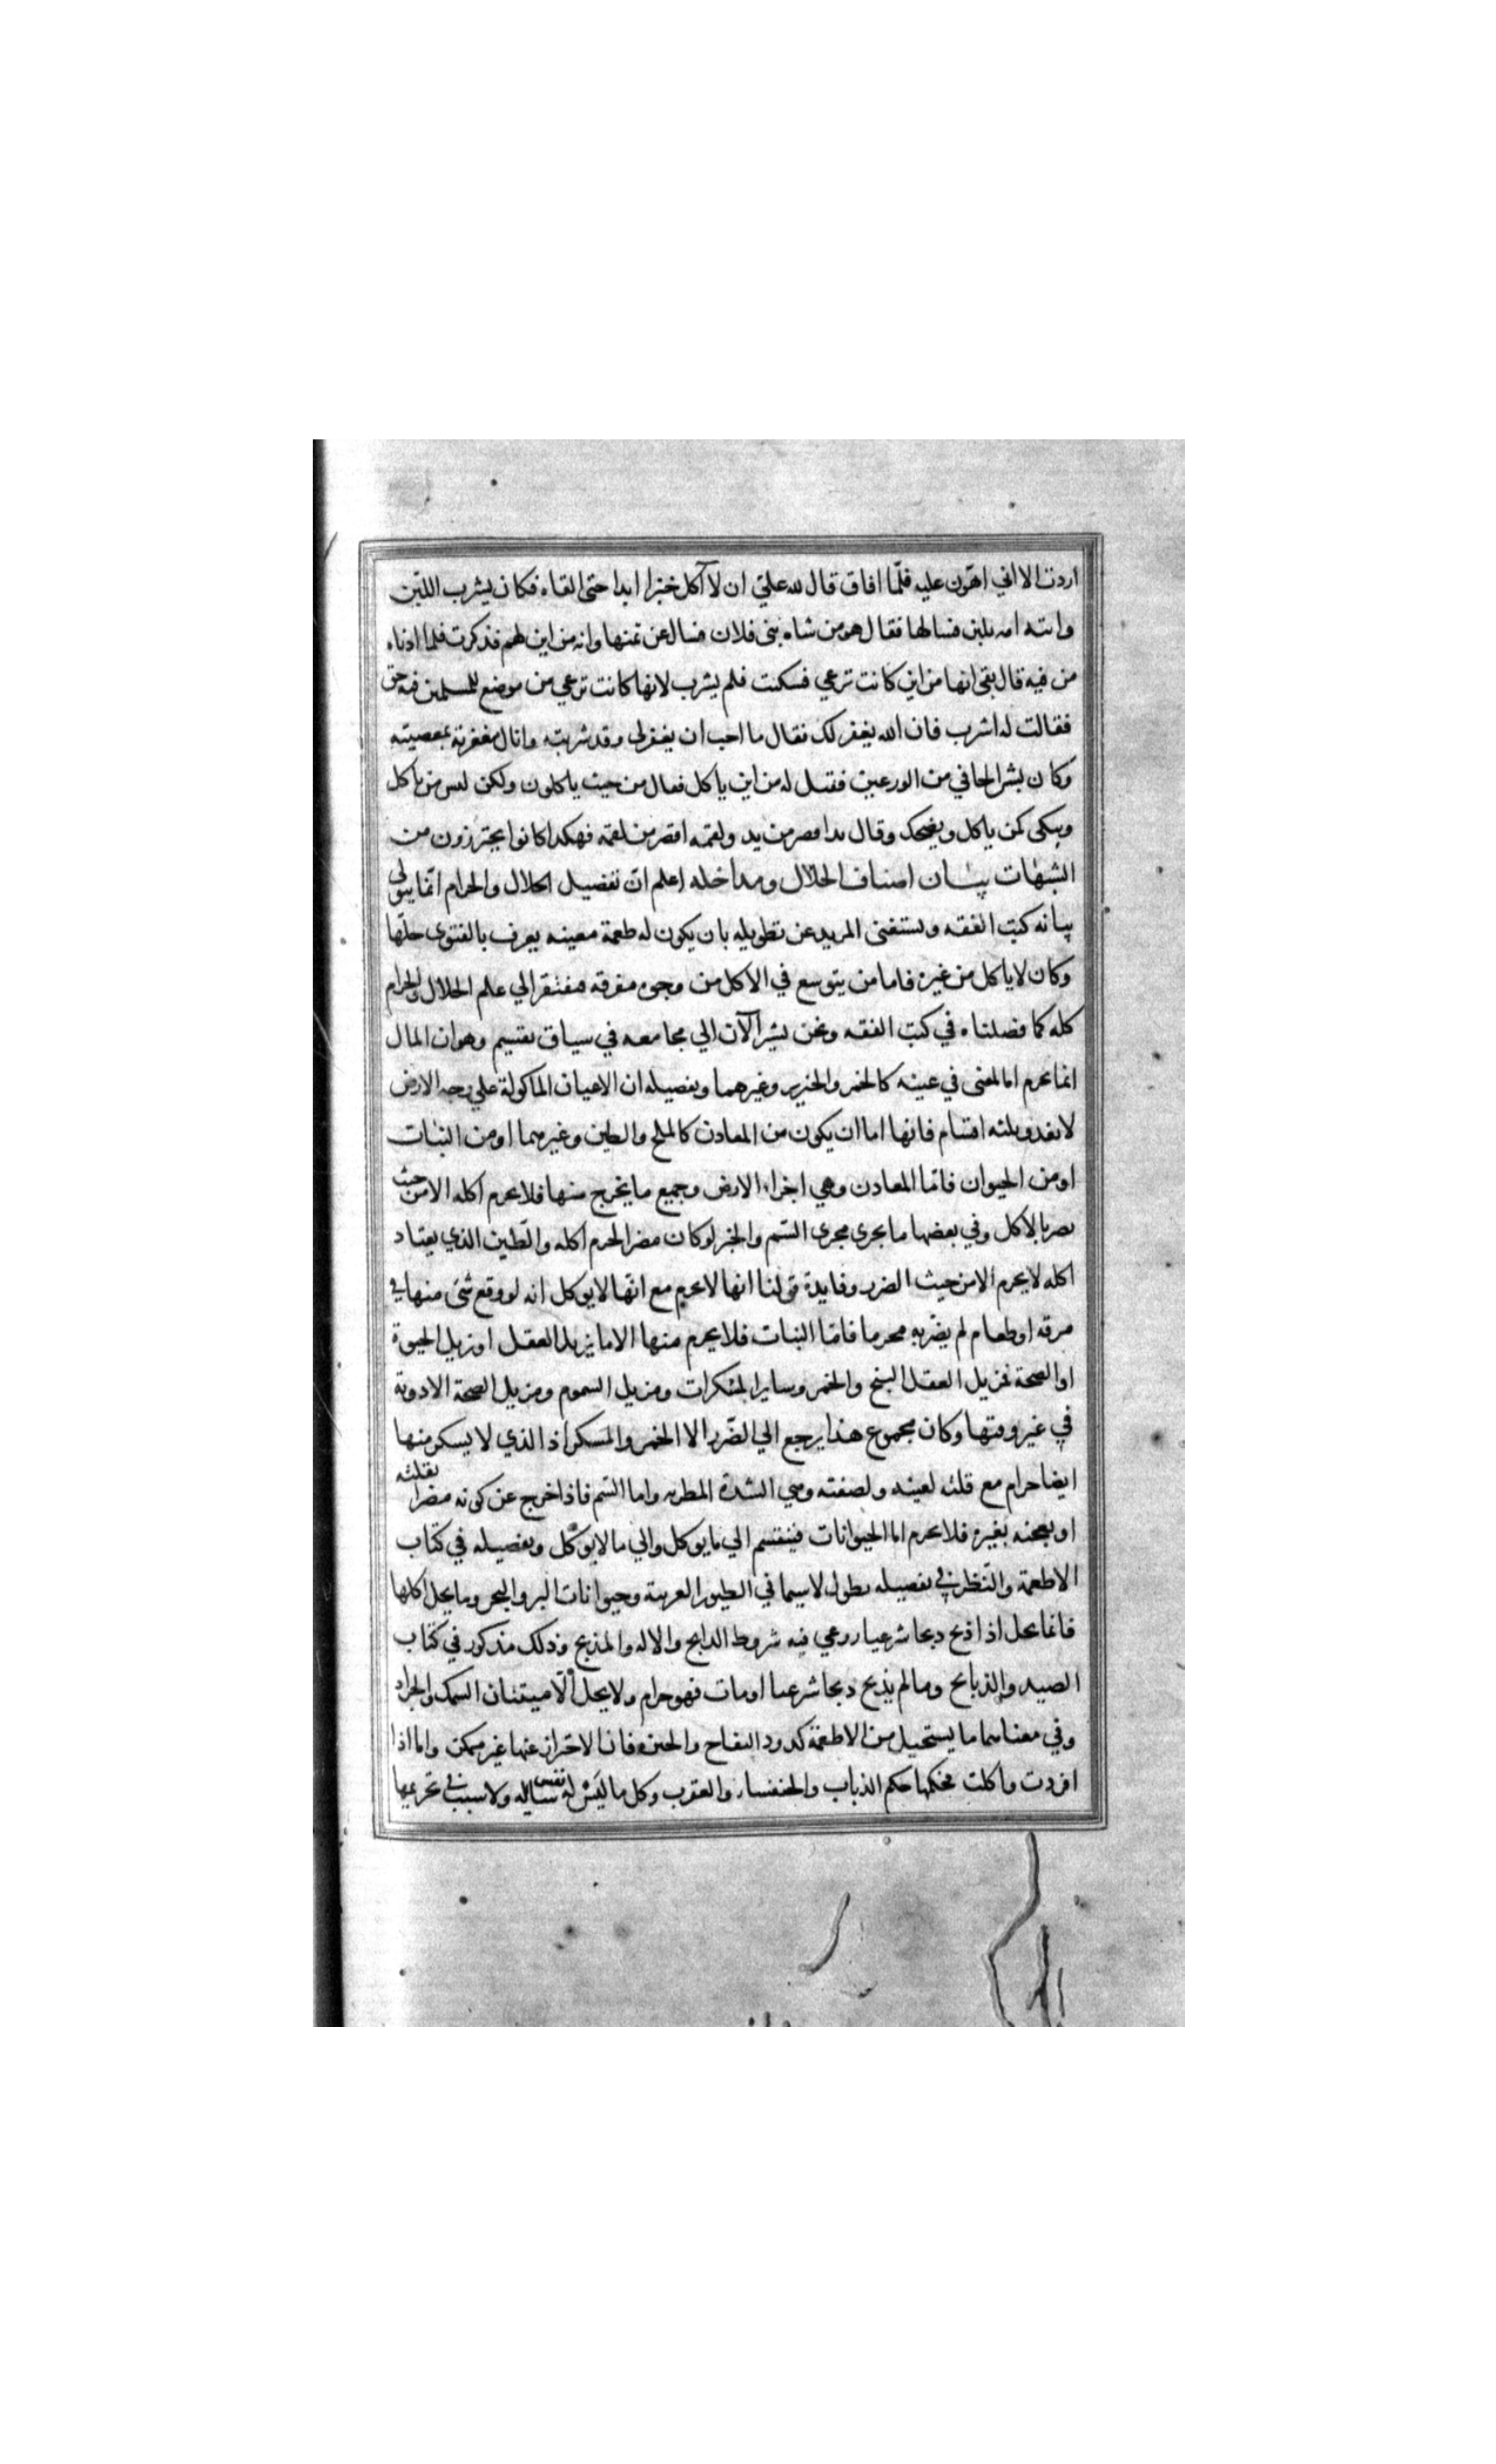 اردت الا اني اهون عليه فلما افاق قال لله علي ان لا آكل خبزا ابدا حتى القاه فكان يشرب اللبن
واتته امه بلبن فسالها فقال هو من شاه بني فلان فسال عن ثمنها وانه من اين لهم فذكرت فلما ادناه
من فيه قال بقي انها من اين كانت ترعي فسكت فلم يشرب لانها كانت ترعي من موضع للمسلمين فيه حق
فقالت له اشرب فان الله يغفر لك فقال ما احب ان يغفر لي وقد شربته وانال مغفرته بمعصيته
وكان بشر الحافي من الورعين فقيل له من اين ياكل فقال من حيث ياكلون ولكن ليس من ياكل
ويبكي كمن ياكل ويضحك وقال يد اقصر من يد ولقمه اقصر من لقمه فهكذا كانوا يحترزون من
الشبهات بيان اصناف الحلال ومداخله اعلم ان تفصيل الحلال والحرام انما يتولي
بيانه كتب الفقه ويستغني المريد عن تطويله بان يكون له طعمة معينه يعرف بالفتوى حلها
وكان لا ياكل من غيره فاما من يتوسع في الاكل من وجوه متفرقه فيفتقر الي علم الحلال والحرام
كله كما فصلناه في كتب الفقه ونحن نشير الآن الي مجامعه في سياق تقسيم وهو ان المال
انما يحرم اما لمعنى في عينه كالخمر والخنزير وغيرهما وتفصيله ان الاعيان الماكولة علي وجه الارض
لا تعدو ثلثه اقسام فانها اما ان يكون من المعادن كالملح والطين وغيرهما او من النبات
او من الحيوان فاما المعادن وهي اجزاء الارض وجميع ما يخرج منها فلا يحرم اكله الا من حيث
يضر بالاكل وفي بعضها ما يجري مجرى السم والخبز لو كان مضرا لحرم اكله والطين الذي يعتاد
اكله لا يحرم الا من حيث الضرر وفايدة قولنا انها لا يحرم مع انها لا يوكل انه لو وقع شئ منها في
مرقه او طعام لم يضر به محرما فاما النبات فلا يحرم منها الا ما يزيل العقل او يزيل الحيوة
او الصحة فمزيل العقل البنج والخمر وساير المسكرات ومزيل السموم ومزيل الصحة الادوية
في غير وقتها وكان مجموع هذا يرجع الي الضرر الا الخمر والمسكر اذ الذي لا يسكر منها
ايضا حرام مع قلته لعينه ولصفته وهي الشدة المطربه واما السم فاذا خرج عن كونه مضرا بقلته
او بعجنه بغيره فلا يحرم اما الحيوانات فينقسم الي ما يوكل والي ما لا يوكل وتفصيله في كتاب
الاطعمة والنظر في تفصيله يطول لاسيما في الطيور الغريبة وحيوانات البر والبحر وما يحل اكلها
فانما يحل اذا ذبح ذبحا شرعيا روعي فيه شروط الذابح والاله والمذبح وذلك مذكور في كتاب
الصيد والذبايح وما لم يذبح ذبحا شرعيا او مات فهو حرام ولا يحل الا ميتتان السمك والجراد
وفي معناهما ما يستحيل من الاطعمة كدود التفاح والجبن فان الاحتراز عنها غير ممكن واما اذا
افردت واكلت فحكمها حكم الذباب والخنفسا والعقرب وكل ما ليس له نفس سايله ولا سبب في تحريمها